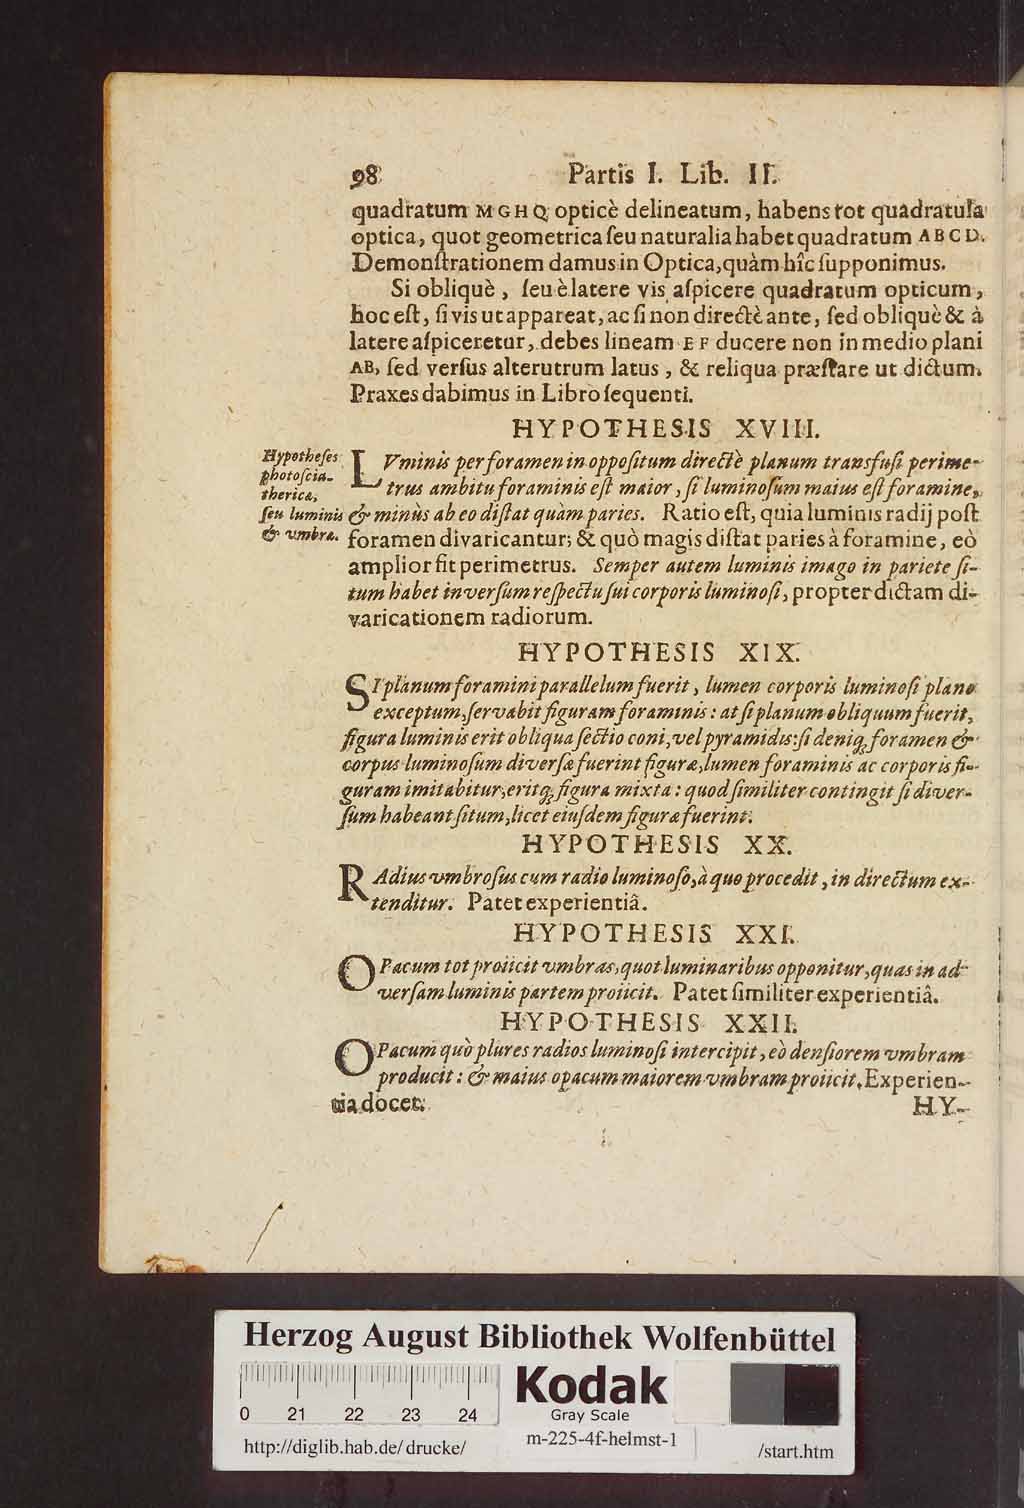 98 Partis I. Lib. II.
quadratum MGHQ opticè delineatum, habens tot quadratula
optica, quot geometrica ſeu naturalia habet quadratum ABCD.
Demonſtrationem damus in Optica, quàm hîc ſupponimus.
Si obliquè, ſeu è latere vis aſpicere quadratum opticum,
hoc eſt, ſi vis ut appareat, ac ſi non directè ante, ſed obliquè & à
latere aſpiceretur, debes lineam EF ducere non in medio plani
AB, ſed verſus alterutrum latus, & reliqua præſtare ut dictum.
Praxes dabimus in Libro ſequenti.
HYPOTHESIS XVIII.
Hypotheſes
photoſcia-
thericæ,
ſeu luminis
& vmbræ.
LVminis per foramen in oppoſitum directè planum transfuſi perime-
trus ambitu foraminis eſt maior, ſi luminoſum maius eſt foramine,
& minùs ab eo diſtat quàm paries. Ratio eſt, quia luminis radij poſt
foramen divaricantur; & quò magis diſtat paries à foramine, eò
amplior fit perimetrus. Semper autem luminis imago in pariete ſi-
tum habet inverſum reſpectu ſui corporis luminoſi, propter dictam di-
varicationem radiorum.
HYPOTHESIS XIX.
SI planum foramini parallelum fuerit, lumen corporis luminoſi plano
exceptum, ſervabit figuram foraminis: at ſi planum obliquum fuerit,
figura luminis erit obliqua ſectio coni, vel pyramidis: ſi deniq; foramen &
corpus luminoſum diverſæ fuerint figuræ, lumen foraminis ac corporis fi-
guram imitabitur, eritq; figura mixta: quod ſimiliter contingit ſi diver-
ſum habeant ſitum, licet eiuſdem figuræ fuerint.
HYPOTHESIS XX.
RAdius vmbroſus cum radio luminoſo, à quo procedit, in directum ex-
tenditur. Patet experientiâ.
HYPOTHESIS XXI.
OPacum tot proiicit vmbras, quot luminaribus opponitur, quas in ad-
verſam luminis partem proiicit. Patet ſimiliter experientiâ.
HYPOTHESIS XXII.
OPacum quò plures radios luminoſi intercipit, eò denſiorem vmbram
producit: & maius opacum maiorem vmbram proiicit. Experien-
tia docet.
HY-
Herzog August Bibliothek Wolfenbüttel
Kodak
Gray Scale
0 21 22 23 24
http://diglib.hab.de/drucke/
m-225-4f-helmst-1
/start.htm